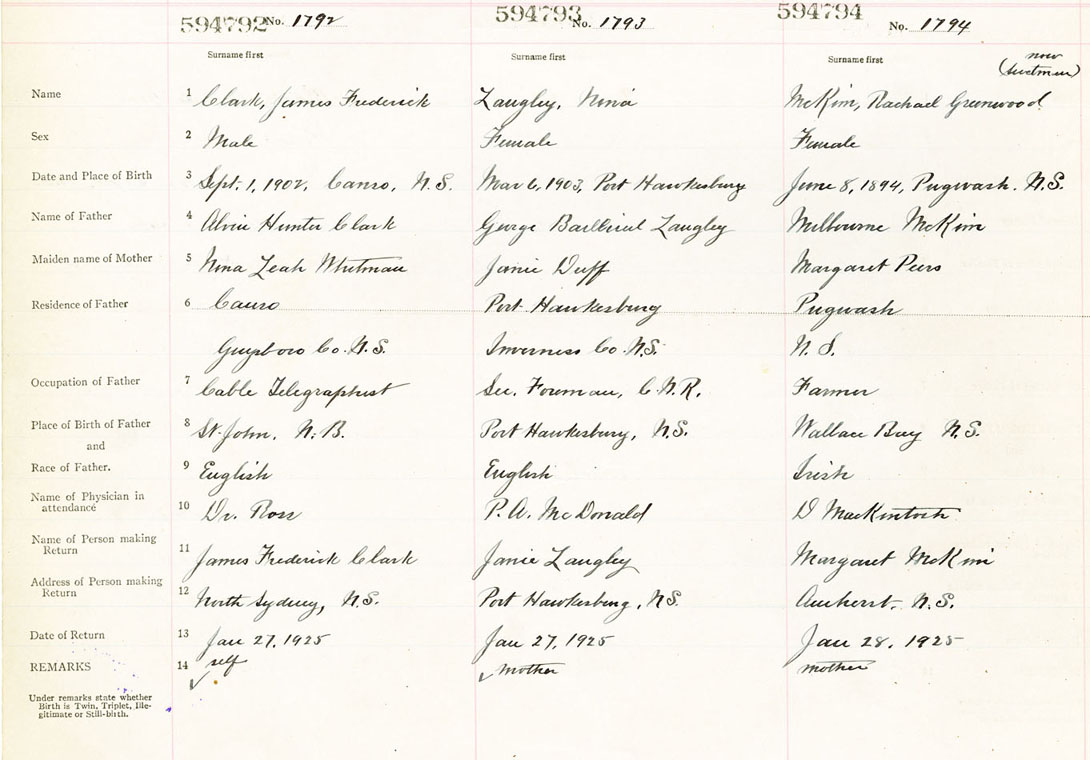 594792 No. 1792 594793 No. 1793 594794 No. 1794
Surname first Surname first Surname first now
Name 1 Clark, James Frederick Langley, Nina McKim, Rachael Greenwood
Sex 2 Male Female Female
Date and Place of Birth 3 Sept. 1, 1902, Canso, N.S. Mar 6, 1903, Port Hawkesbury June 8, 1894, Pugwash. N.S.
Name of Father 4 Alvin Hunter Clark George Langley Milbourne McKim
Maiden name of Mother 5 Nina Leah Whitman Janie Duff Margaret Peers
Residence of Father 6 Canso Port Hawkesbury Pugwash
Guysboro Co. N.S. Inverness Co. N.S. N. S.
Occupation of Father 7 Cable Telegraphist Sec. Foreman, C.N.R. Farmer
Place of Birth of Father 8 St. John, N.B. Port Hawkesbury, N.S. Wallace Bay N.S.
and
Race of Father. 9 English English Irish
Name of Physician in
attendance 10 Dr. Ross P. A. McDonald D MacKintosh
Name of Person making
Return 11 James Frederick Clark Janie Langley Margaret McKim
Address of Person making
Return 12 North Sydney, N.S. Port Hawkesbury, N.S. Amherst. N.S.
Date of Return 13 Jan 27, 1925 Jan 27, 1925 Jan 28, 1925
REMARKS 14 self mother mother
Under remarks state whether
Birth is Twin, Triplet, Ille-
gitimate or Still-birth.